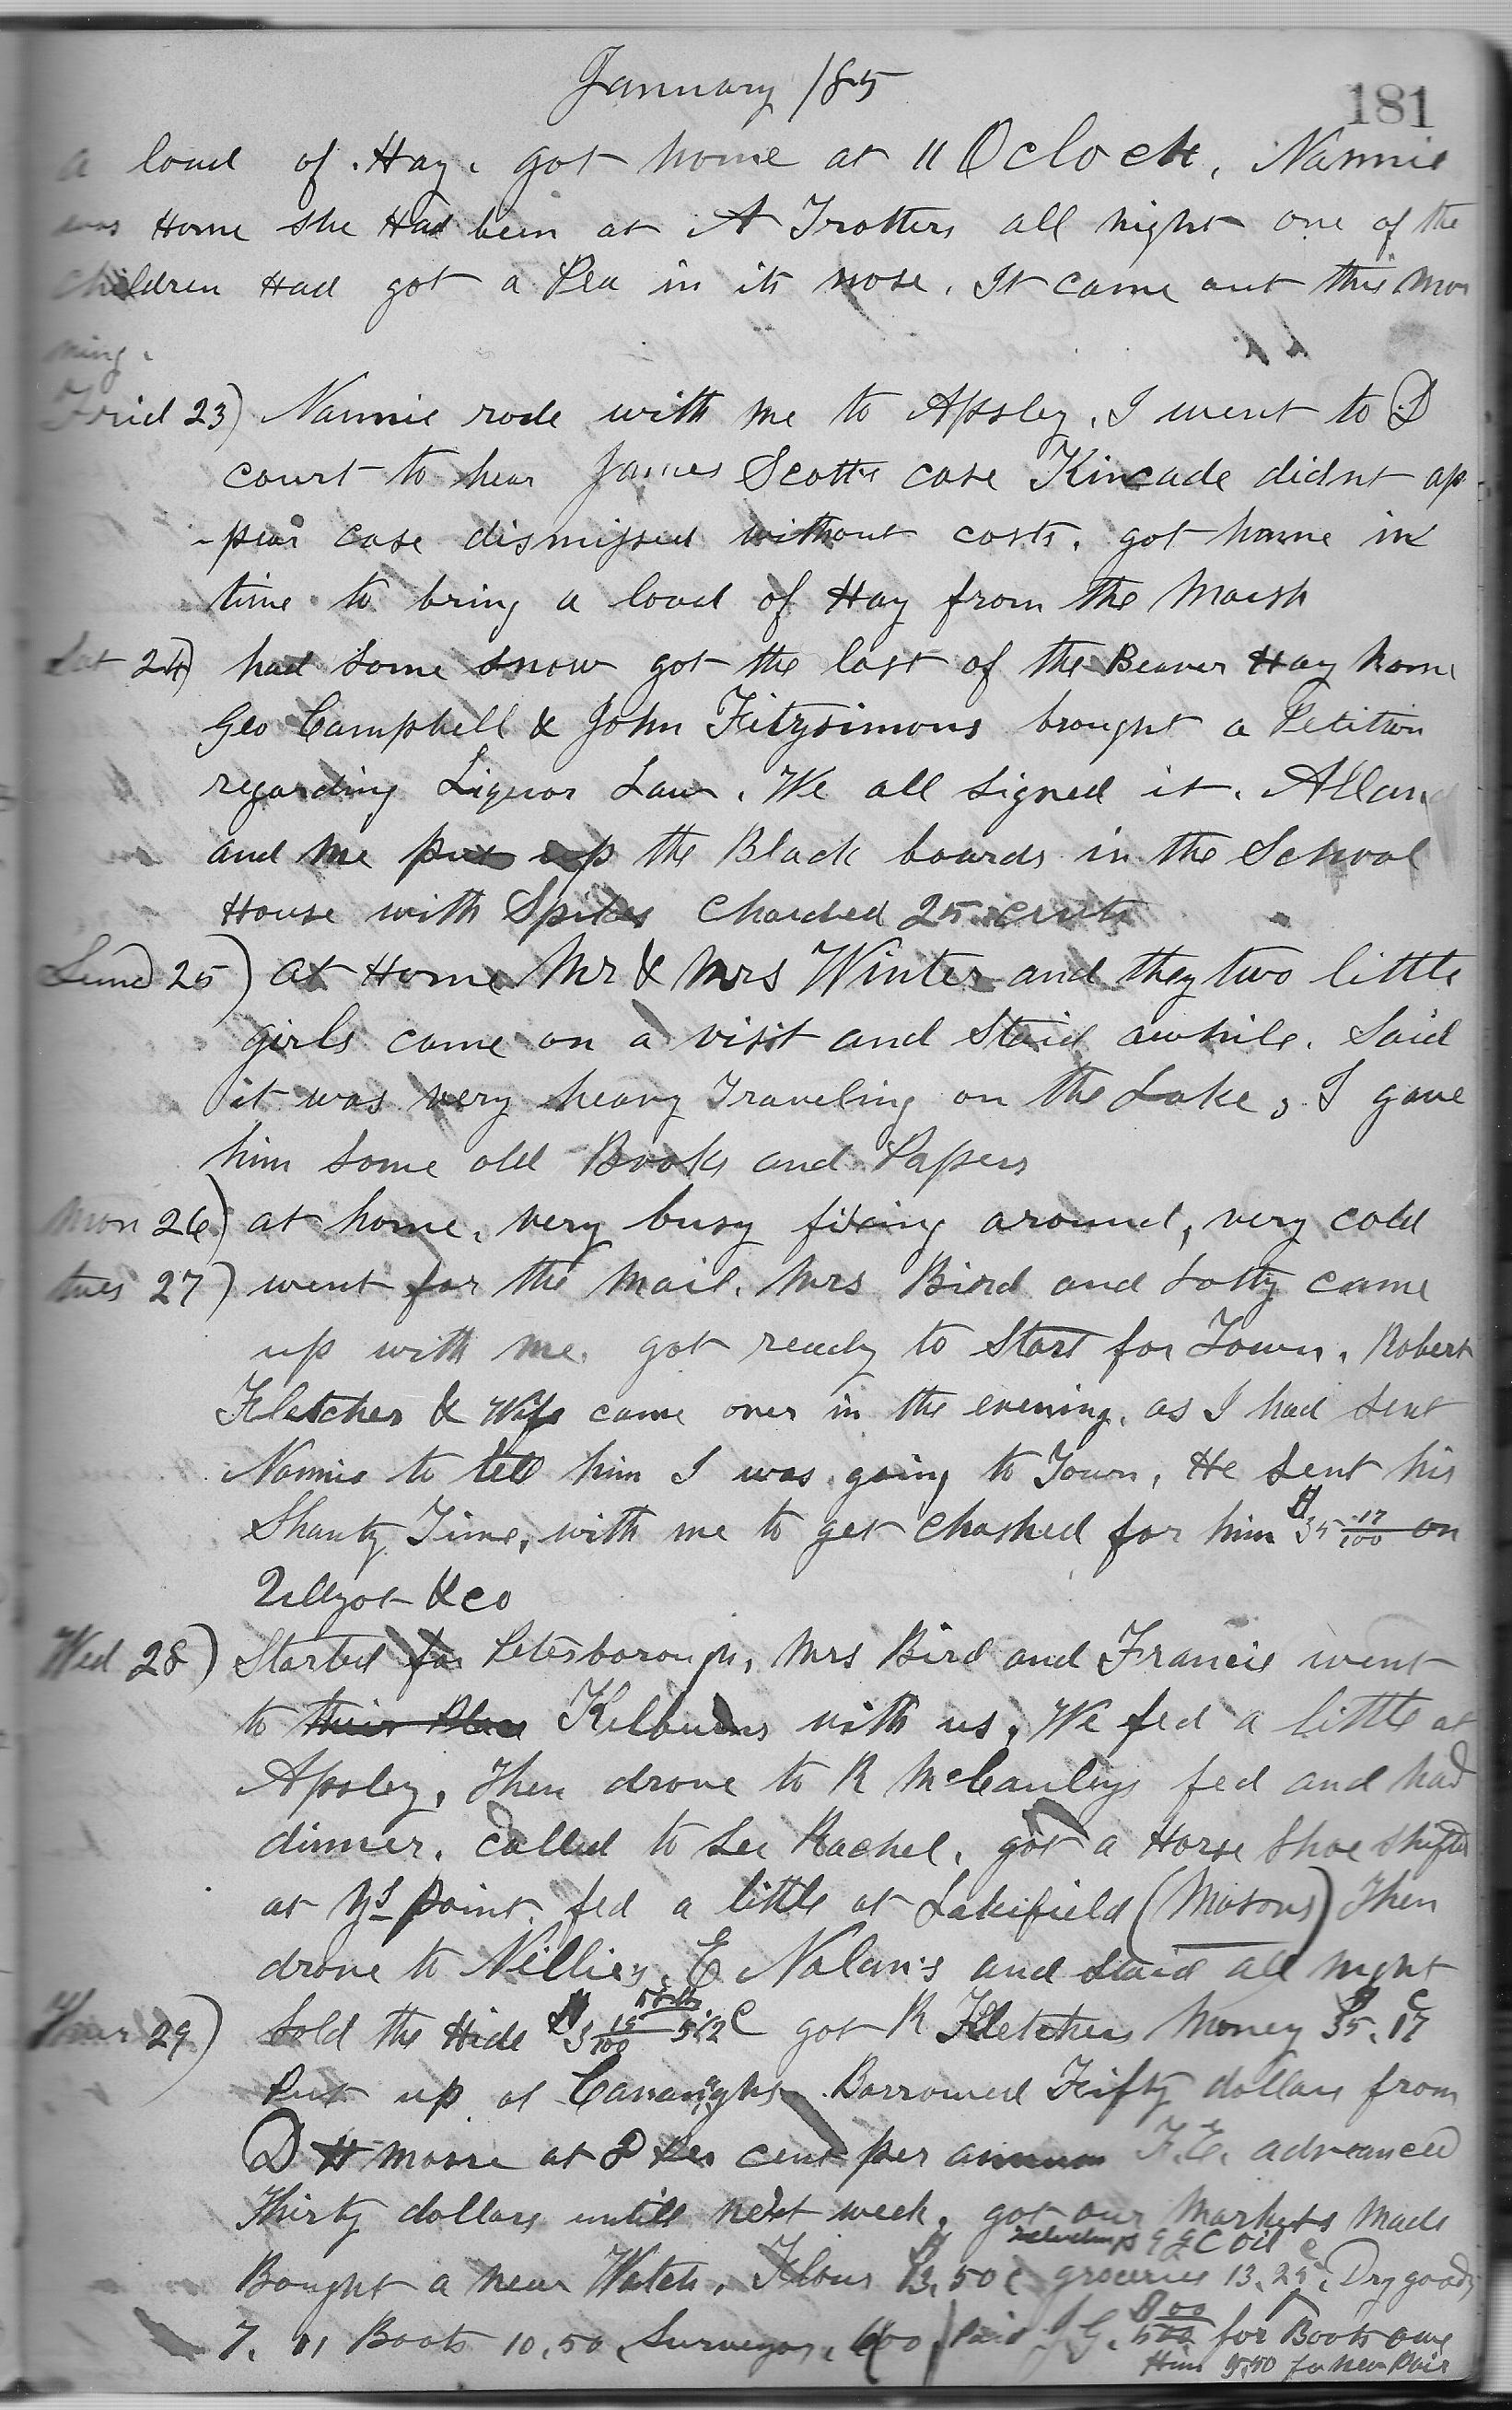 January /85
181
a load of Hay. got home at 11 Oclock, Nannie
was Home she Had been at A Trotters all night one of the
children Had got a Pea in its nose. It came out this Mor
ning.
Frid 23) Nannie rode with me to Apsley. I went to D
court to hear James Scotts case Kincade didnt ap
-pear case dismissed without costs. got home in
time to bring a load of Hay from the Marsh
Sat 24) had some snow got the last of the Beaver Hay home
Geo Campbell & John Fitzsimons brought a Petition
regarding Liquor Law. We all signed it. Allan
and me put up the Black boards in the School
House with Spikes Charched 25 cents
Sund 25) at Home Mr & Mrs Winter and they two little
girls came on a visit and Staid awhile. Said
it was very heavy Traveling on the Lake, I gave
him some old Books and Papers
Mon 26) at home, very busy fixing around, very cold
tues 27) went for the Mail. Mrs Bird and Lotty came
up with me. got ready to Start for Town. Robert
Fletcher & Wife came over in the evening. as I had sent
Nannie to tell him I was going to Town, He sent his
Shanty Time, with me to get Chashed for him $35 17/100 on
& co
Wed 28) Started for Peterborough, Mrs Bird and Francie went
to their Place Kilburns with us. We fed a little at
Apsley. Then drove to R McCauleys fed and had
dinner. Called to See Rachel. got a Horse Shoe shifted
at Ys Point. fed a little at Lakefield (Masons) Then
drove to Nellies. E Nolan's and Staid all night
Thur 29) Sold the Hide $3 19/100 5 1/2 C got R Fletchers Money 35.17 C
Put up at Cavanaghs Borrowed Fifty dollars from
D H Moore at 8 per cent per annum F.E. advanced
Thirty dollars untill next week. got our Markets Made
including 9 g C Oil
Bought a new Watch, Flour $3.50 c groceries 13.25. Dry goods
7. 11 Boots 10.50 Surveyor. 600 / Paid J G. 8 00 500 for Boots owe
Him 5.50 for New Pair